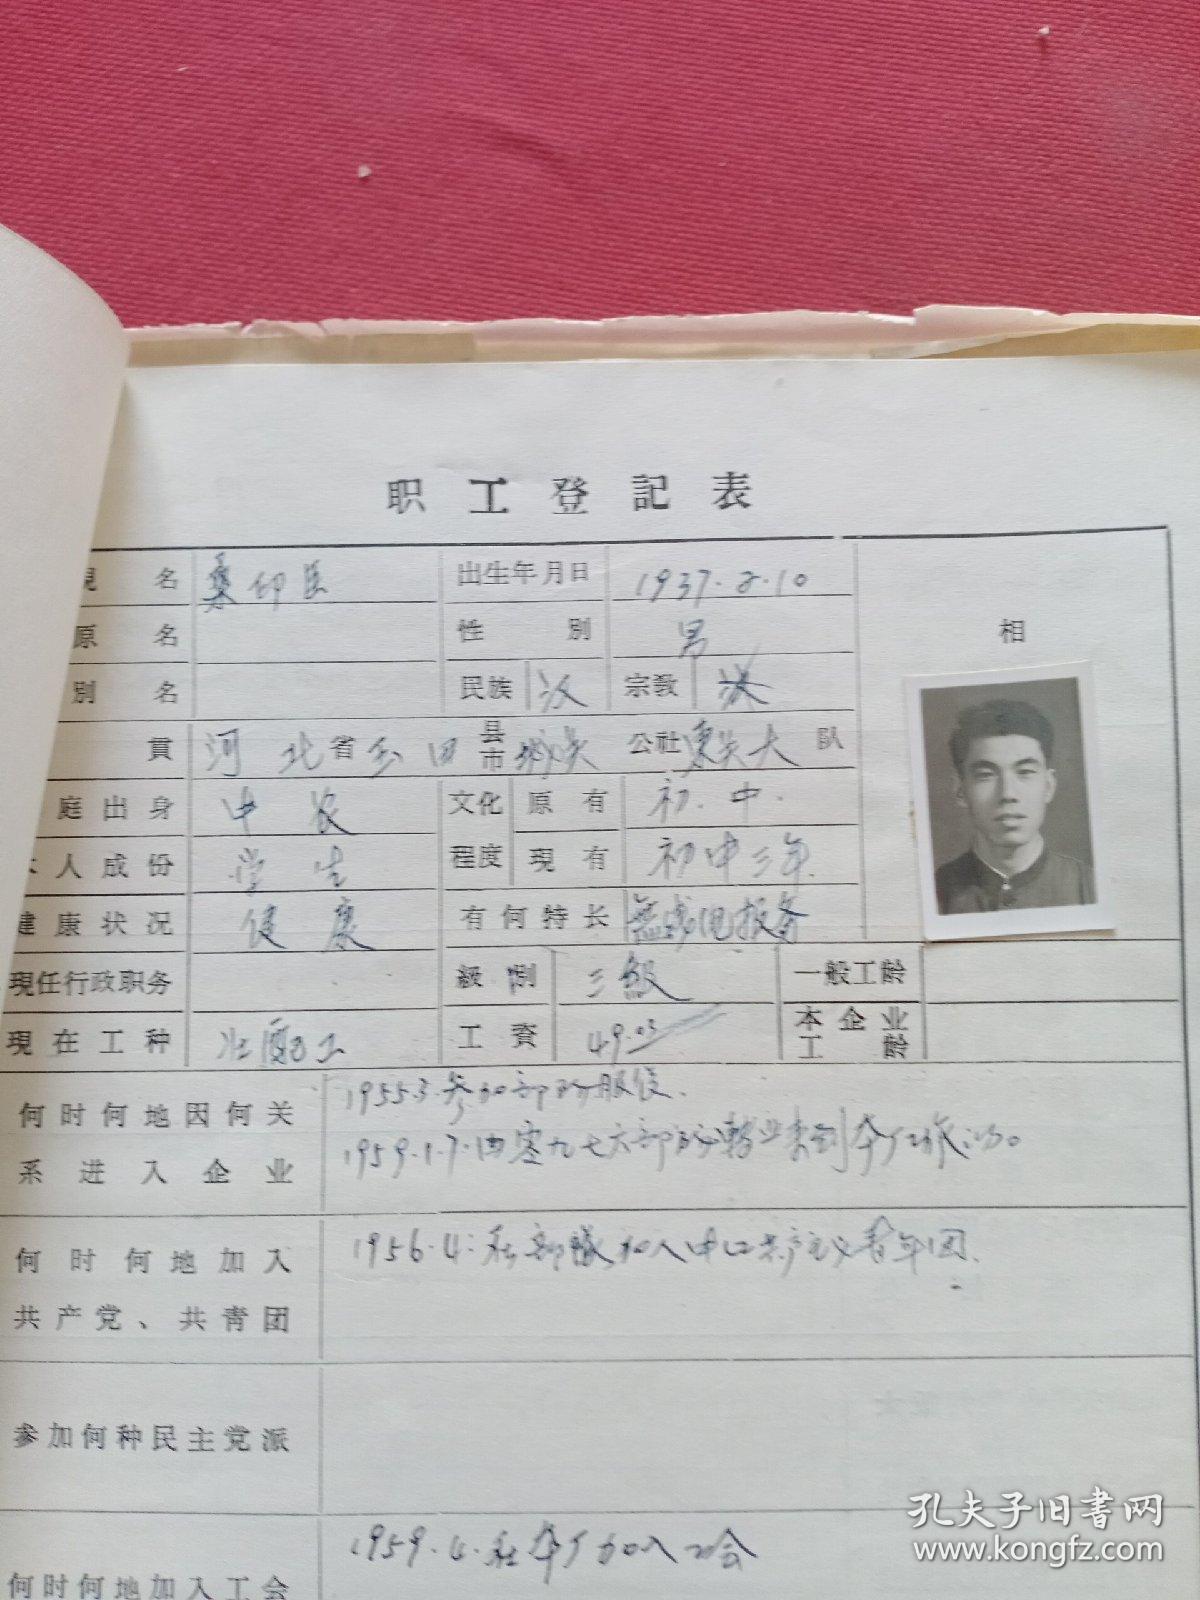 职工登記表
現名 桑印臣 出生年月日 1937.2.10
原名 性別 男 相
別名 民族 汉 宗教
貫 河北省玉田县市 公社 大队
庭出身 中农 文化程度 原有 初中.
人成份 学生 現有 初中三年.
健康状况 健康 有何特长 無线电报务
現任行政职务 級別 三級 一般工龄
現在工种 工資 49.03 本企业工龄
何时何地因何关系进入企业 1955.3.参加部队服役.
1959.1.7.由零九七六部队转业来到本厂工作
何时何地加入共产党、共青团 1956.4:在部隊加入中口共产主义青年团.
参加何种民主党派
何时何地加入工会 1959.4.在本厂加入工会
孔夫子旧书网
www.kongfz.com